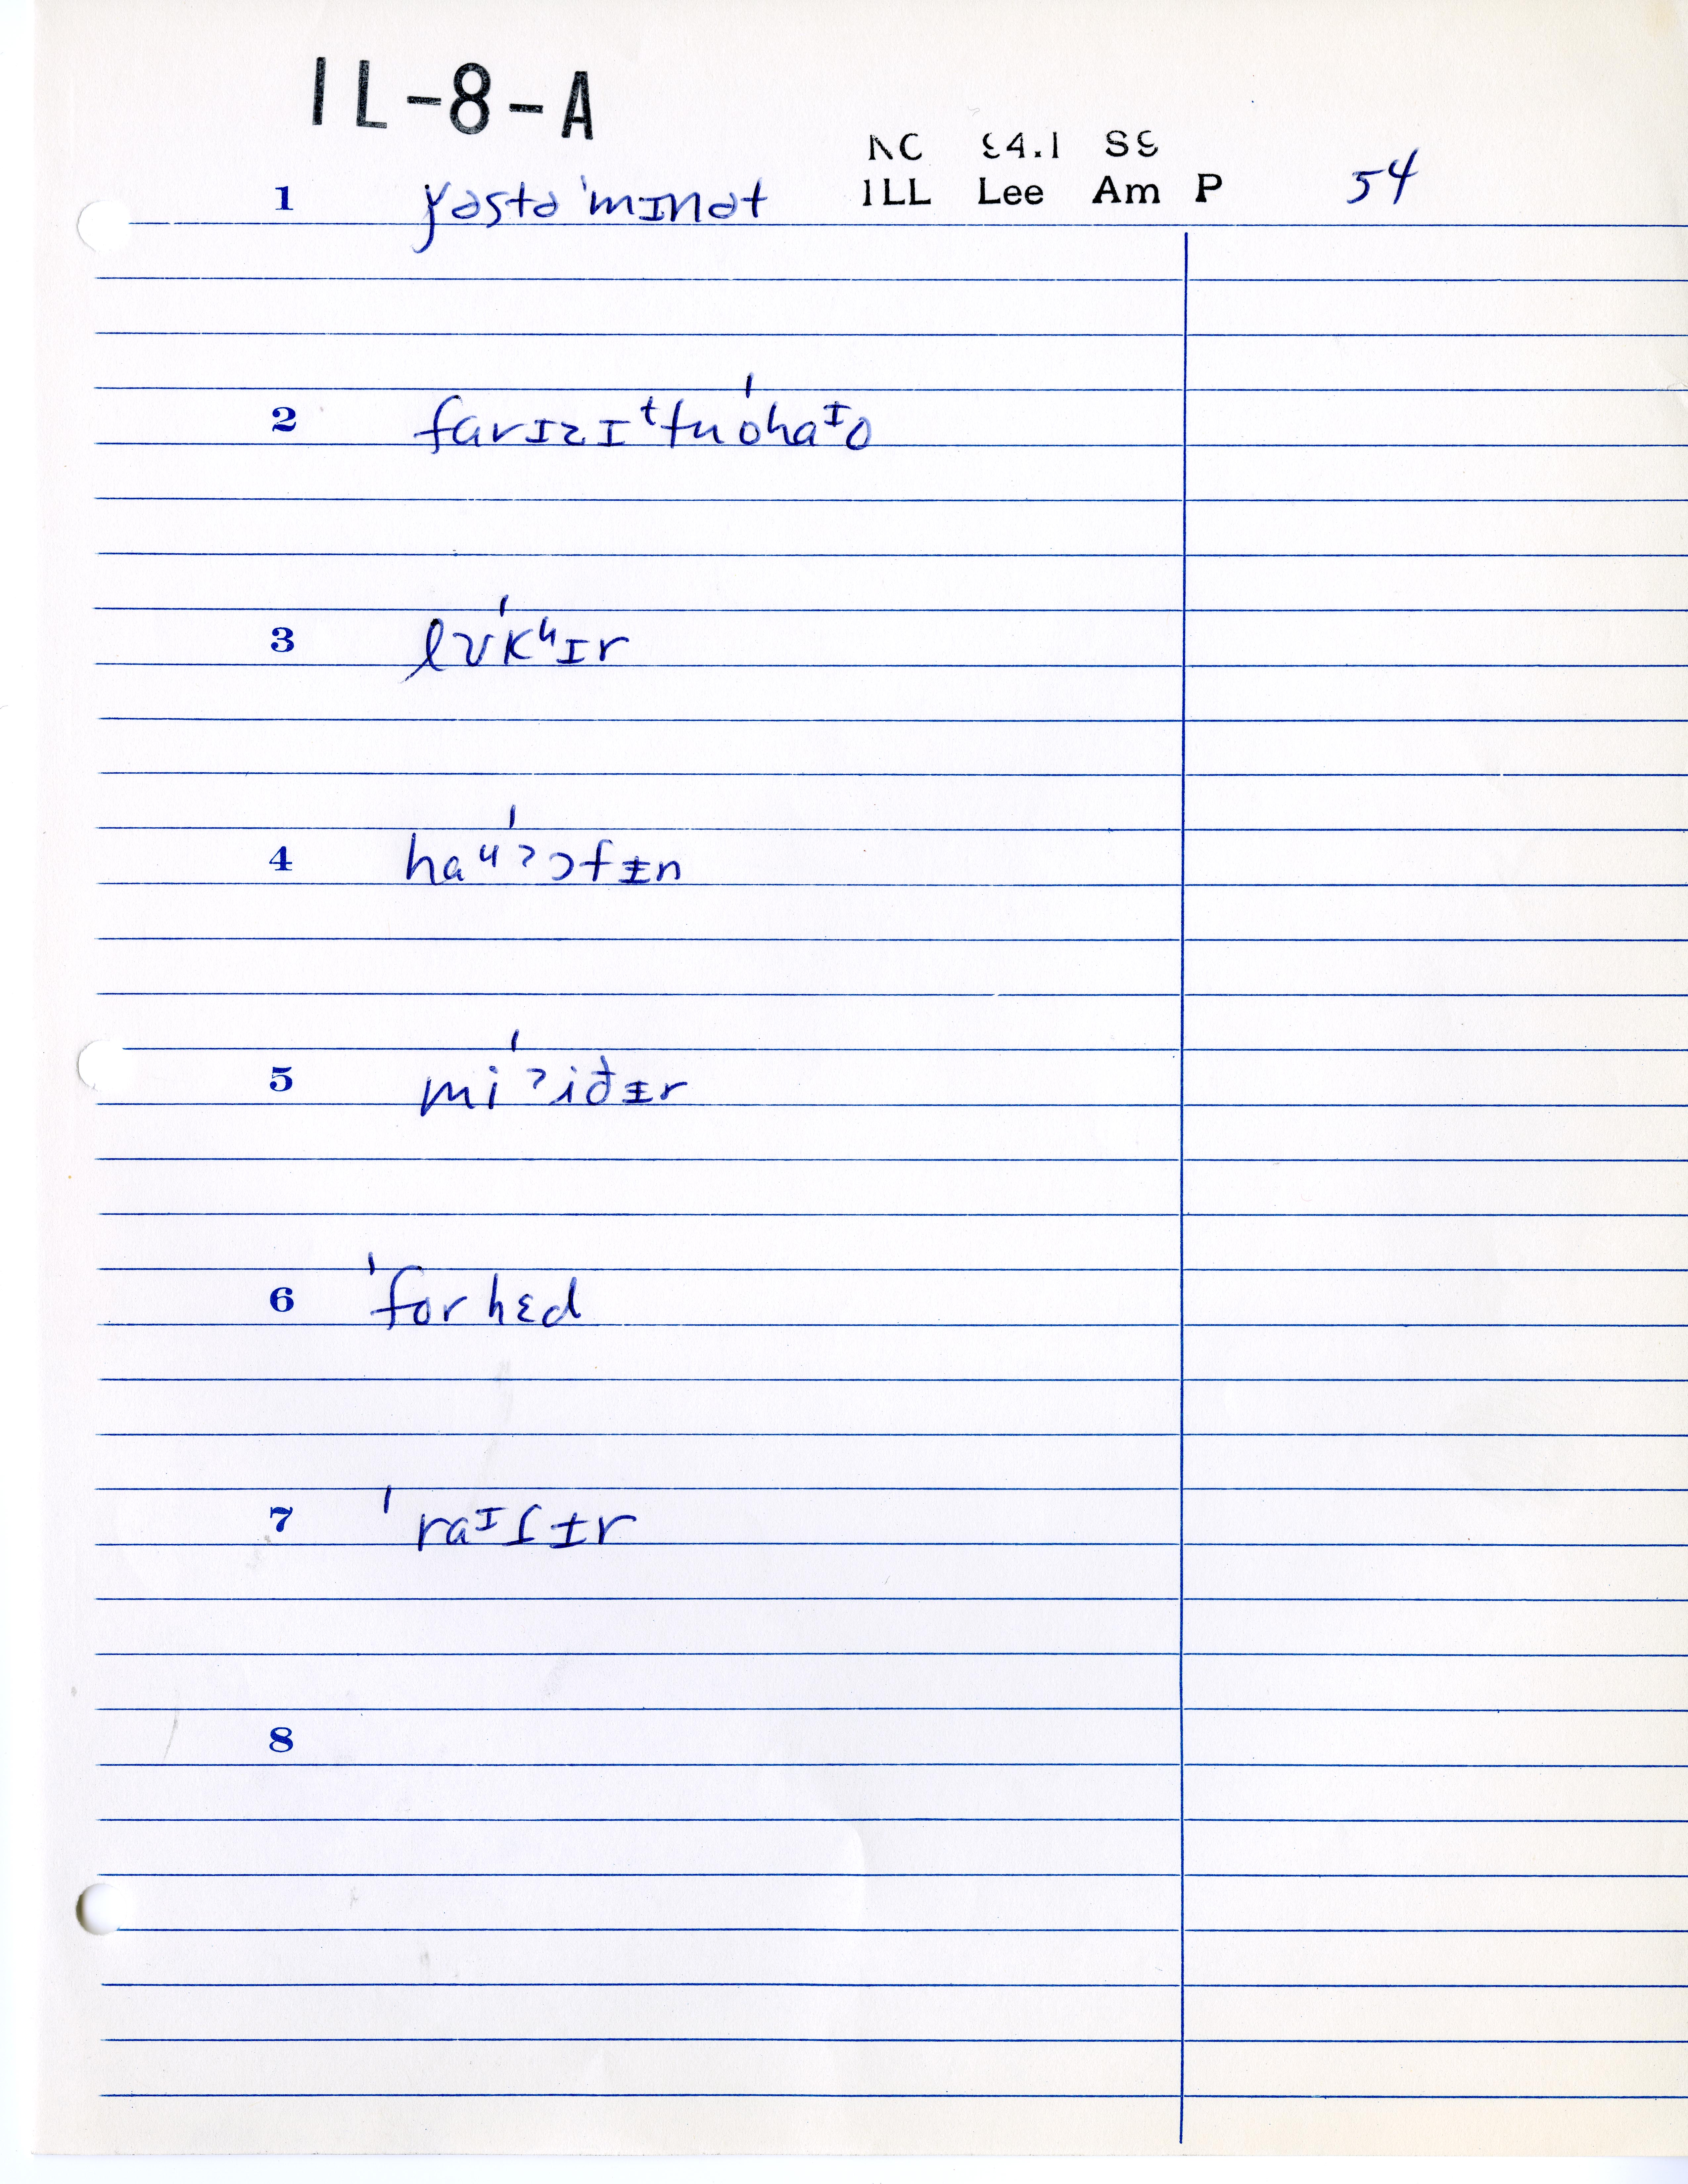 IL-8-A
NC 84.1 S9
ILL Lee Am P 54
1 ɣəstə'mɪnət
2 farɪzɪᵗtu'ohaᴵo
3 lʊ'kʰɪr
4 ha'ᵘʔɔfɪ̵n
5 mi'ʔiðɪ̵r
6 'forhɛd
7 'raᴵʃɪ̵r
8